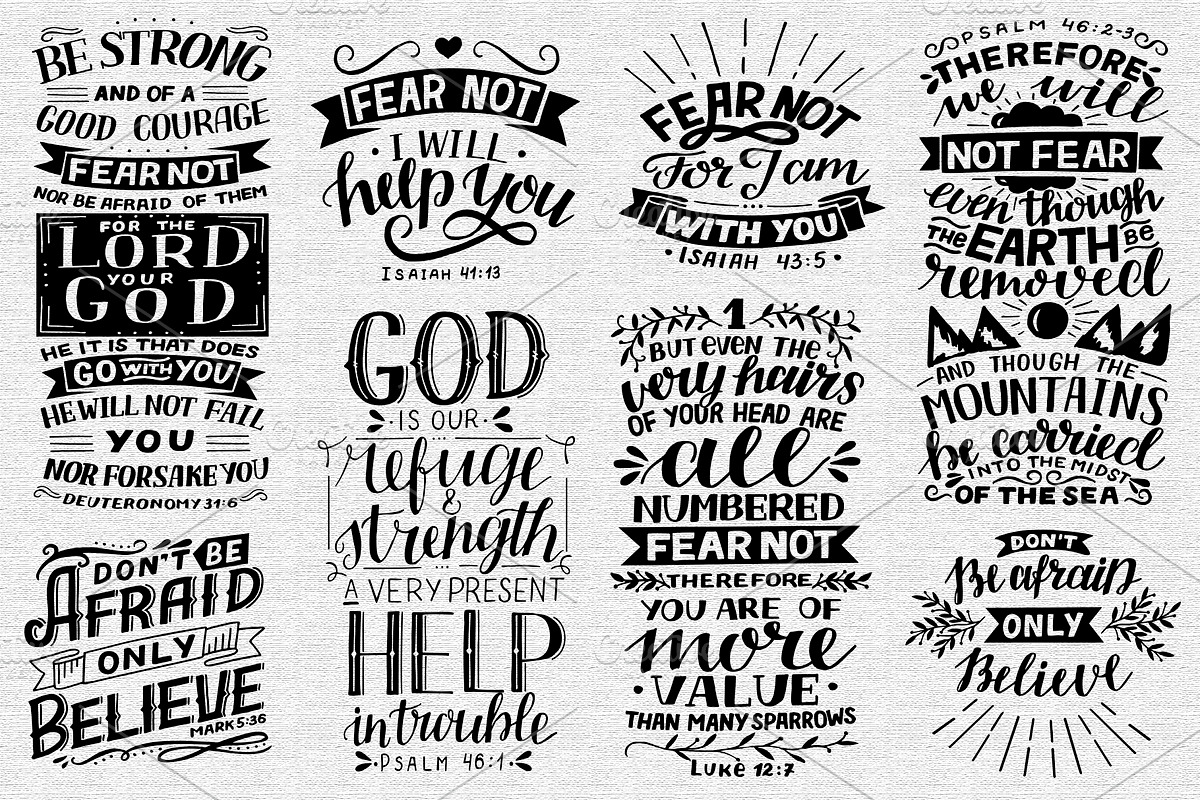 BE STRONG
AND OF A
GOOD COURAGE
FEAR NOT
NOR BE AFRAID OF THEM
FOR THE
LORD
YOUR
GOD
HE IT IS THAT DOES
GO WITH YOU
HE WILL NOT FAIL
YOU
NOR FORSAKE YOU
DEUTERONOMY 31:6
DON'T BE
AFRAID
ONLY
BELIEVE
MARK 5:36
FEAR NOT
I WILL
help you
ISAIAH 41:13
GOD
IS OUR
refuge
&
strength
A VERY PRESENT
HELP
in trouble
PSALM 46:1
FEAR NOT
For I am
WITH YOU
ISAIAH 43:5
1
BUT EVEN THE
very hairs
OF YOUR HEAD ARE
all
NUMBERED
FEAR NOT
THEREFORE
YOU ARE OF
more
VALUE
THAN MANY SPARROWS
LUKE 12:7
PSALM 46:2-3
THEREFORE
we will
NOT FEAR
even though
THE EARTH BE
removed
AND THOUGH THE
MOUNTAINS
be carried
INTO THE MIDST
OF THE SEA
DON'T
Be afraid
ONLY
Believe